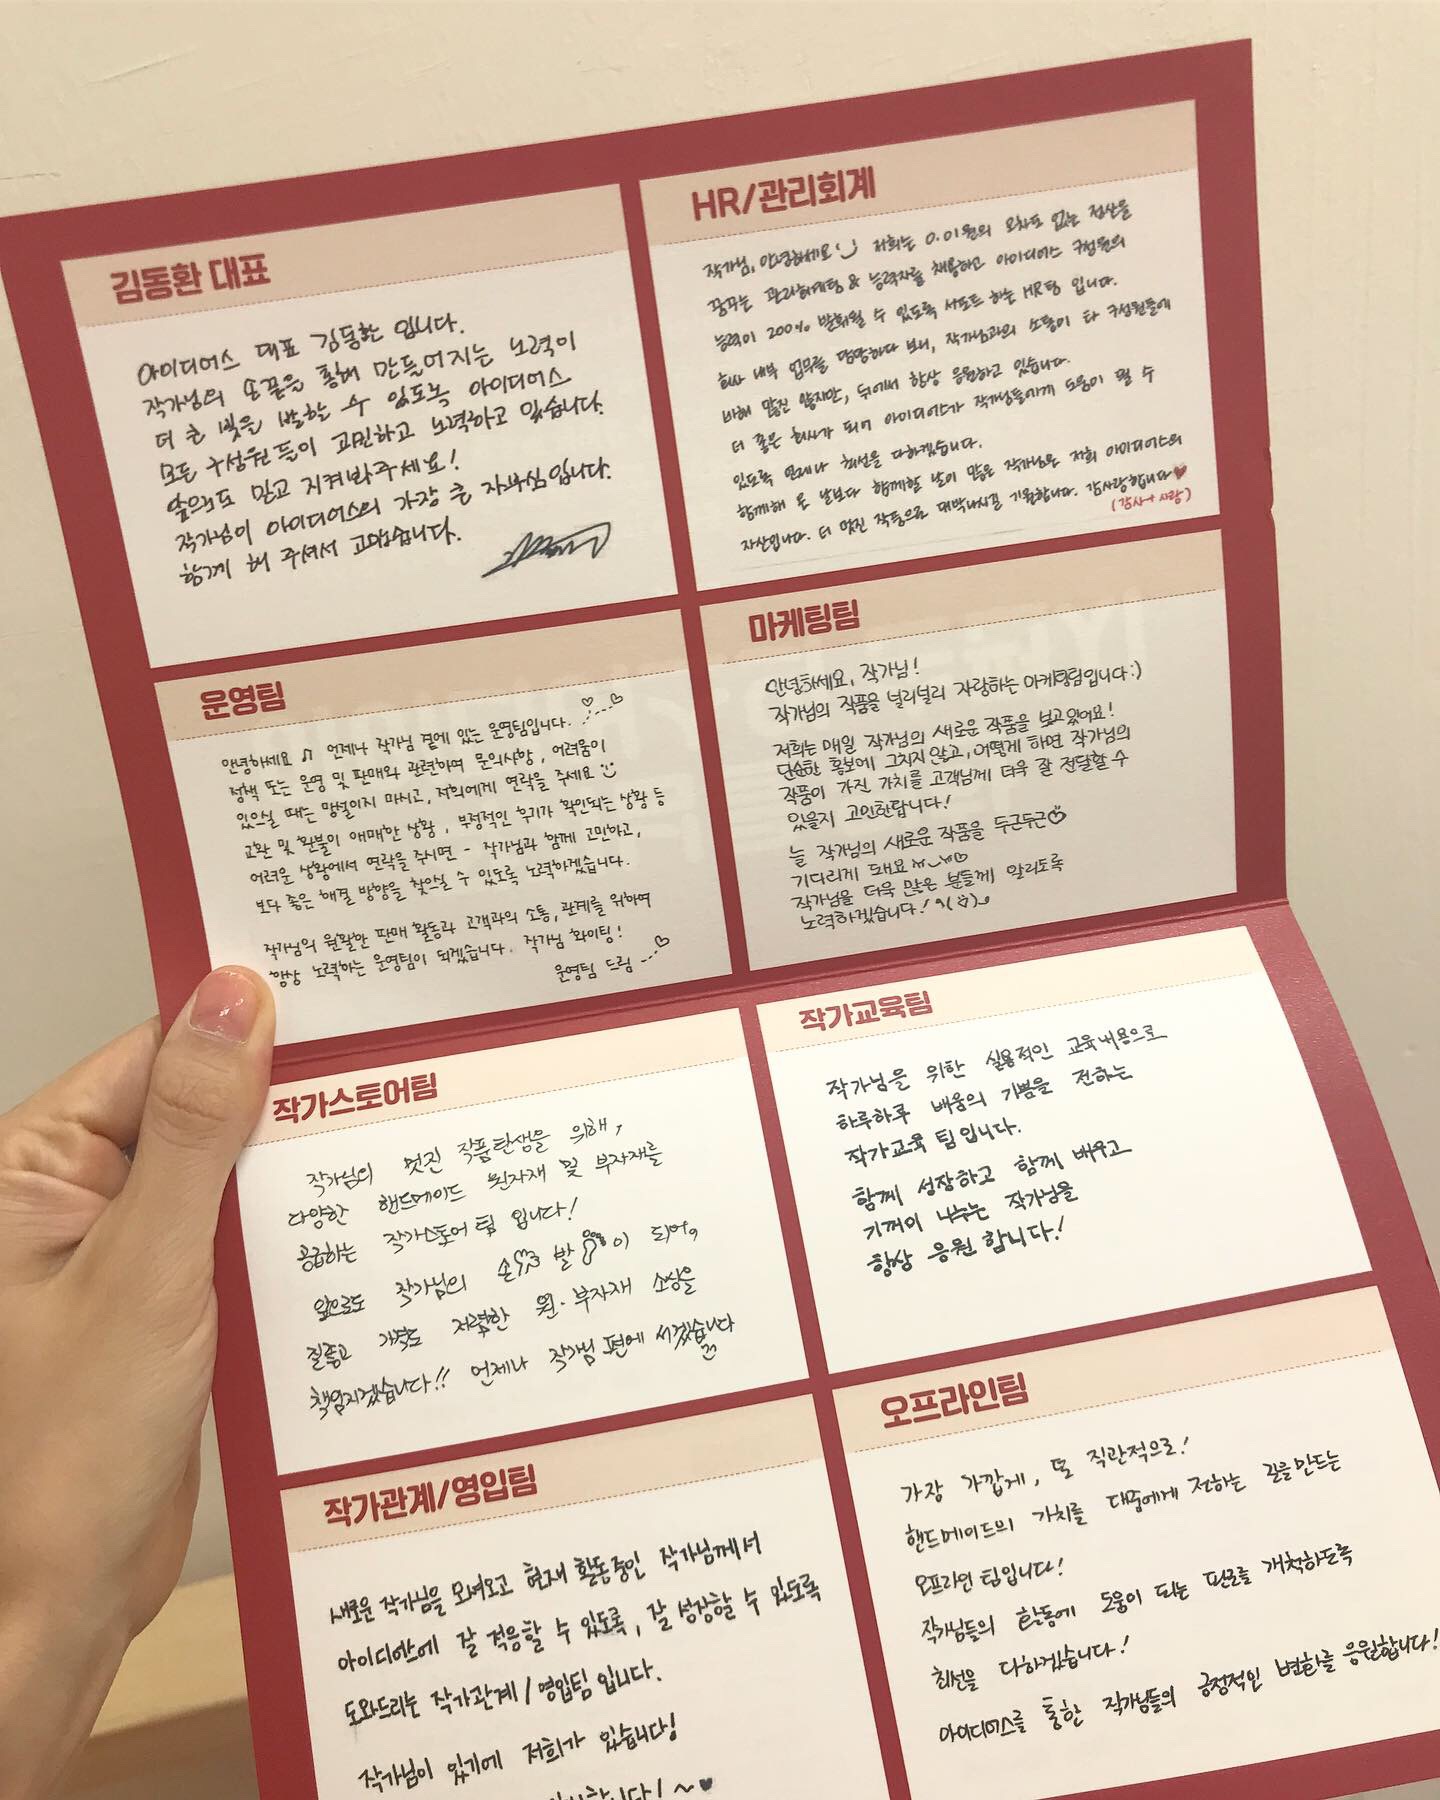 김동환 대표
아이디어스 대표 김동환 입니다.
작가님의 손끝을 통해 만들어지는 노력이
더 큰 빛을 발할 수 있도록 아이디어스
모든 구성원들이 고민하고 노력하고 있습니다.
앞으로도 믿고 지켜봐주세요!
작가님이 아이디어스의 가장 큰 자부심입니다.
함께 해 주셔서 고맙습니다.
HR/관리회계
작가님, 안녕하세요 저희는 0.01원의 오차도 없는 정산을
꿈꾸는 관리회계팀 & 능력자를 채용하고 아이디어스 구성원의
능력이 200% 발휘될 수 있도록 서포트 하는 HR팀 입니다.
회사 내부 업무를 담당하다 보니, 작가님과의 소통이 타 구성원들에
비해 많진 않지만, 뒤에서 항상 응원하고 있습니다.
더 좋은 회사가 되어 아이디어스가 작가님들에게 도움이 될 수
있도록 언제나 최선을 다하겠습니다.
함께해 온 날보다 함께할 날이 많은 작가님은 저희 아이디어스의
자산입니다. 더 멋진 작품으로 대박나시길 기원합니다. 감사랑합니다♥
(감사+사랑)
운영팀
안녕하세요 ♫ 언제나 작가님 곁에 있는 운영팀입니다.
정책 또는 운영 및 판매와 관련하여 문의사항, 어려움이
있으실 때는 망설이지 마시고, 저희에게 연락을 주세요
교환 및 환불이 애매한 상황, 부정적인 후기가 확인되는 상황 등
어려운 상황에서 연락을 주시면 - 작가님과 함께 고민하고,
보다 좋은 해결 방향을 찾으실 수 있도록 노력하겠습니다.
작가님의 원활한 판매 활동과 고객과의 소통, 관계를 위하여
항상 노력하는 운영팀이 되겠습니다. 작가님 화이팅!
운영팀 드림
마케팅팀
안녕하세요, 작가님!
작가님의 작품을 널리널리 자랑하는 마케팅팀입니다:)
저희는 매일 작가님의 새로운 작품을 보고있어요!
단순한 홍보에 그치지 않고, 어떻게 하면 작가님의
작품이 가진 가치를 고객님께 더욱 잘 전달할 수
있을지 고민한답니다!
늘 작가님의 새로운 작품을 두근두근
기다리게 돼요
작가님을 더욱 많은 분들께 알리도록
노력하겠습니다!
작가스토어팀
작가님의 멋진 작품탄생을 위해,
다양한 핸드메이드 원자재 및 부자재를
공급하는 작가스토어팀 입니다!
앞으로도 작가님의 손 발 이 되어,
질좋고 가격도 저렴한 원·부자재 소싱을
책임지겠습니다!! 언제나 작가님 편에 서겠습니다
작가교육팀
작가님을 위한 실용적인 교육내용으로
하루하루 배움의 기쁨을 전하는
작가교육팀입니다.
함께 성장하고 함께 배우고
기꺼이 나누는 작가님을
항상 응원합니다!
작가관계/영입팀
새로운 작가님을 모셔오고 현재 활동중인 작가님께서
아이디어스에 잘 적응할 수 있도록, 잘 성장할 수 있도록
도와드리는 작가관계/영입팀 입니다.
작가님이 있기에 저희가 있습니다!
오프라인팀
가장 가깝게, 또 직관적으로!
핸드메이드의 가치를 대중에게 전하는 길을 만드는
오프라인 팀입니다!
작가님들의 활동에 도움이 되는 판로를 개척하도록
최선을 다하겠습니다!
아이디어스를 통한 작가님들의 긍정적인 변화를 응원합니다!